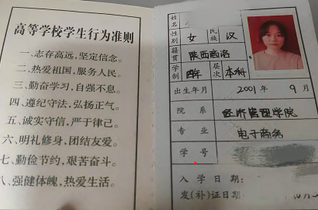 高等学校学生行为准则
一、志存高远，坚定信念。
二、热爱祖国，服务人民。
三、勤奋学习，自强不息。
四、遵纪守法，弘扬正气。
五、诚实守信，严于律己。
六、明礼修身，团结友爱。
七、勤俭节约，艰苦奋斗。
八、强健体魄，热爱生活。
姓名
性别 女 民族 汉
籍贯 陕西商洛
学制 四年 层次 本科
出生年月 2001年9月
院系 经济管理学院
专业 电子商务
学号
入学日期： 年
发（补）证日期